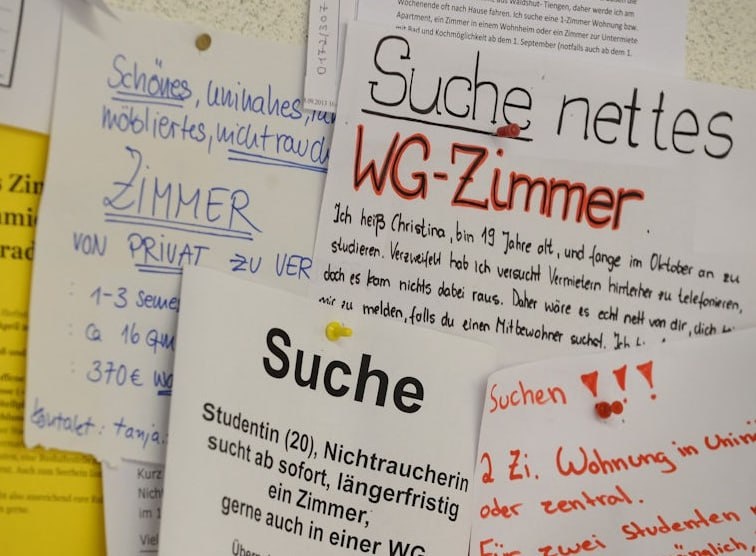 Wochenende oft nach Hause fahren. Ich suche eine 1-Zimmer Wohnung bzw.
Apartment, ein Zimmer in einem Wohnheim oder ein Zimmer zur Untermiete
mit Bad und Kochmöglichkeit ab dem 1. September (notfalls auch ab dem 1.
Schönes, uninahes,
möbliertes, nichtrauch
ZIMMER
VON PRIVAT ZU VER
1-3 Seme
ca 16 qm
370€
kontakt: tanja.
Suche nettes
WG-Zimmer.
Ich heiß Christina, bin 19 Jahre alt, und fange im Oktober an zu
studieren. Verzweifelt hab ich versucht Vermietern hinterher zu telefonieren,
doch es kam nichts dabei raus. Daher wäre es echt nett von dir, dich
mir zu melden, falls du einen Mitbewohner suchst. Ich
Suche
Studentin (20), Nichtraucherin
sucht ab sofort, längerfristig
ein Zimmer,
gerne auch in einer WG
Suchen !!!
2 Zi. Wohnung in Uninä
oder zentral.
Für zwei Studenten
Zin
rad
Kurz
Nich
im 1
Viel